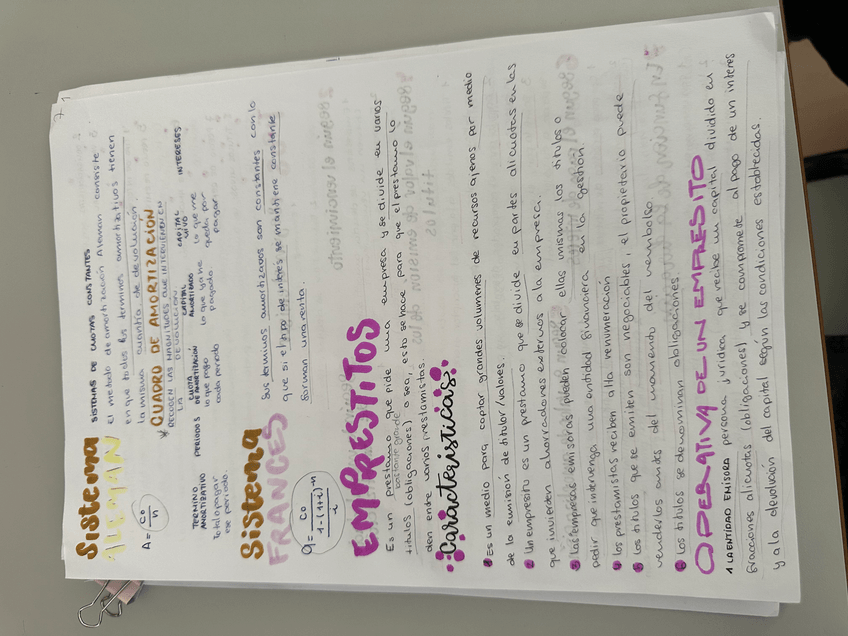 Sistema
ALEMAN
SISTEMAS DE CUOTAS CONSTANTES
el metodo de amortización Aleman consiste
en que todos los terminos amortizativos tienen
la misma cuantia de devolución
A = Co / n
*CUADRO DE AMORTIZACIÓN
RECOGEN LAS MAGNITUDES QUE INTERVIENEN EN
LA DEVOLUCION
TERMINO AMORTIZATIVO
Total a pagar
ese periodo.
PERIODOS
CUOTA DE AMORTIZACIÓN
lo que pago
cada periodo
CAPITAL AMORTIZADO
lo que ya he
pagado.
CAPITAL VIVO
lo que me
queda por
pagar.
INTERESES
Sistema
FRANCES
Sus terminos amortizados son constantes con lo
que si el tipo de interes se mantiene constante
forman una renta.
a = Co / 1-(1+i)^-n / i
EMPRESTITOS
Es un prestamo que pide una empresa y se divide en varios
bastante grande
titulos (obligaciones) o sea, esto se hace para que el prestamo lo
den entre varios prestamistas.
Caracteristicas
1 Es un medio para captar grandes volumenes de recursos ajenos por medio
de la emisión de titulos/valores.
2 Un emprestito es un prestamo que se divide en partes alicuotas en las
que invierten ahorradores externos a la empresa.
3 Las empresas emisoras pueden colocar ellas mismas los titulos o
pedir que intervenga una entidad financiera en la gestión
4 los prestamistas reciben a la renumeración
5 Los titulos que se emiten son negociables, el propietario puede
venderlos antes del momento del reembolso
6 Los titulos se denominan obligaciones
OPERATIVA DE UN EMPRESITO
1 LA ENTIDAD EMISORA persona juridica que recibe un capital dividido en
fracciones alicuotas (obligaciones) y se compromete al pago de un interes
y a la devolución del capital según las condiciones establecidas.